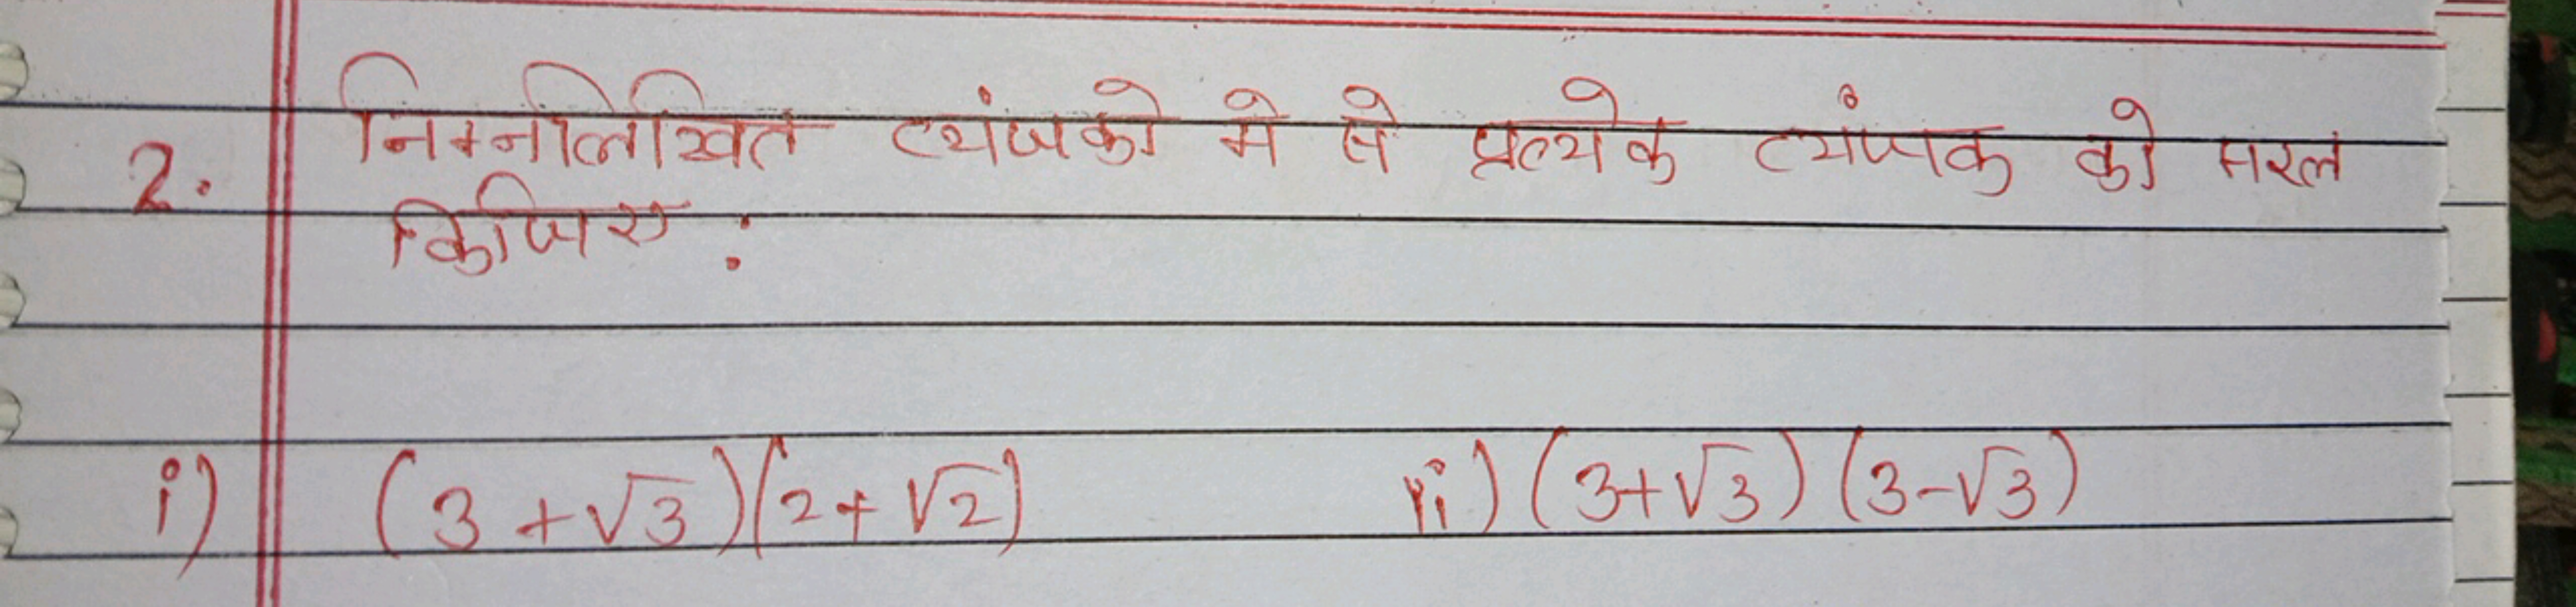 2. निम्नलिखित व्यंजको मे से प्रत्येक व्यंजक को सरल
किजिए :
i) (3 + √3)(2 + √2) ii) (3+√3) (3-√3)